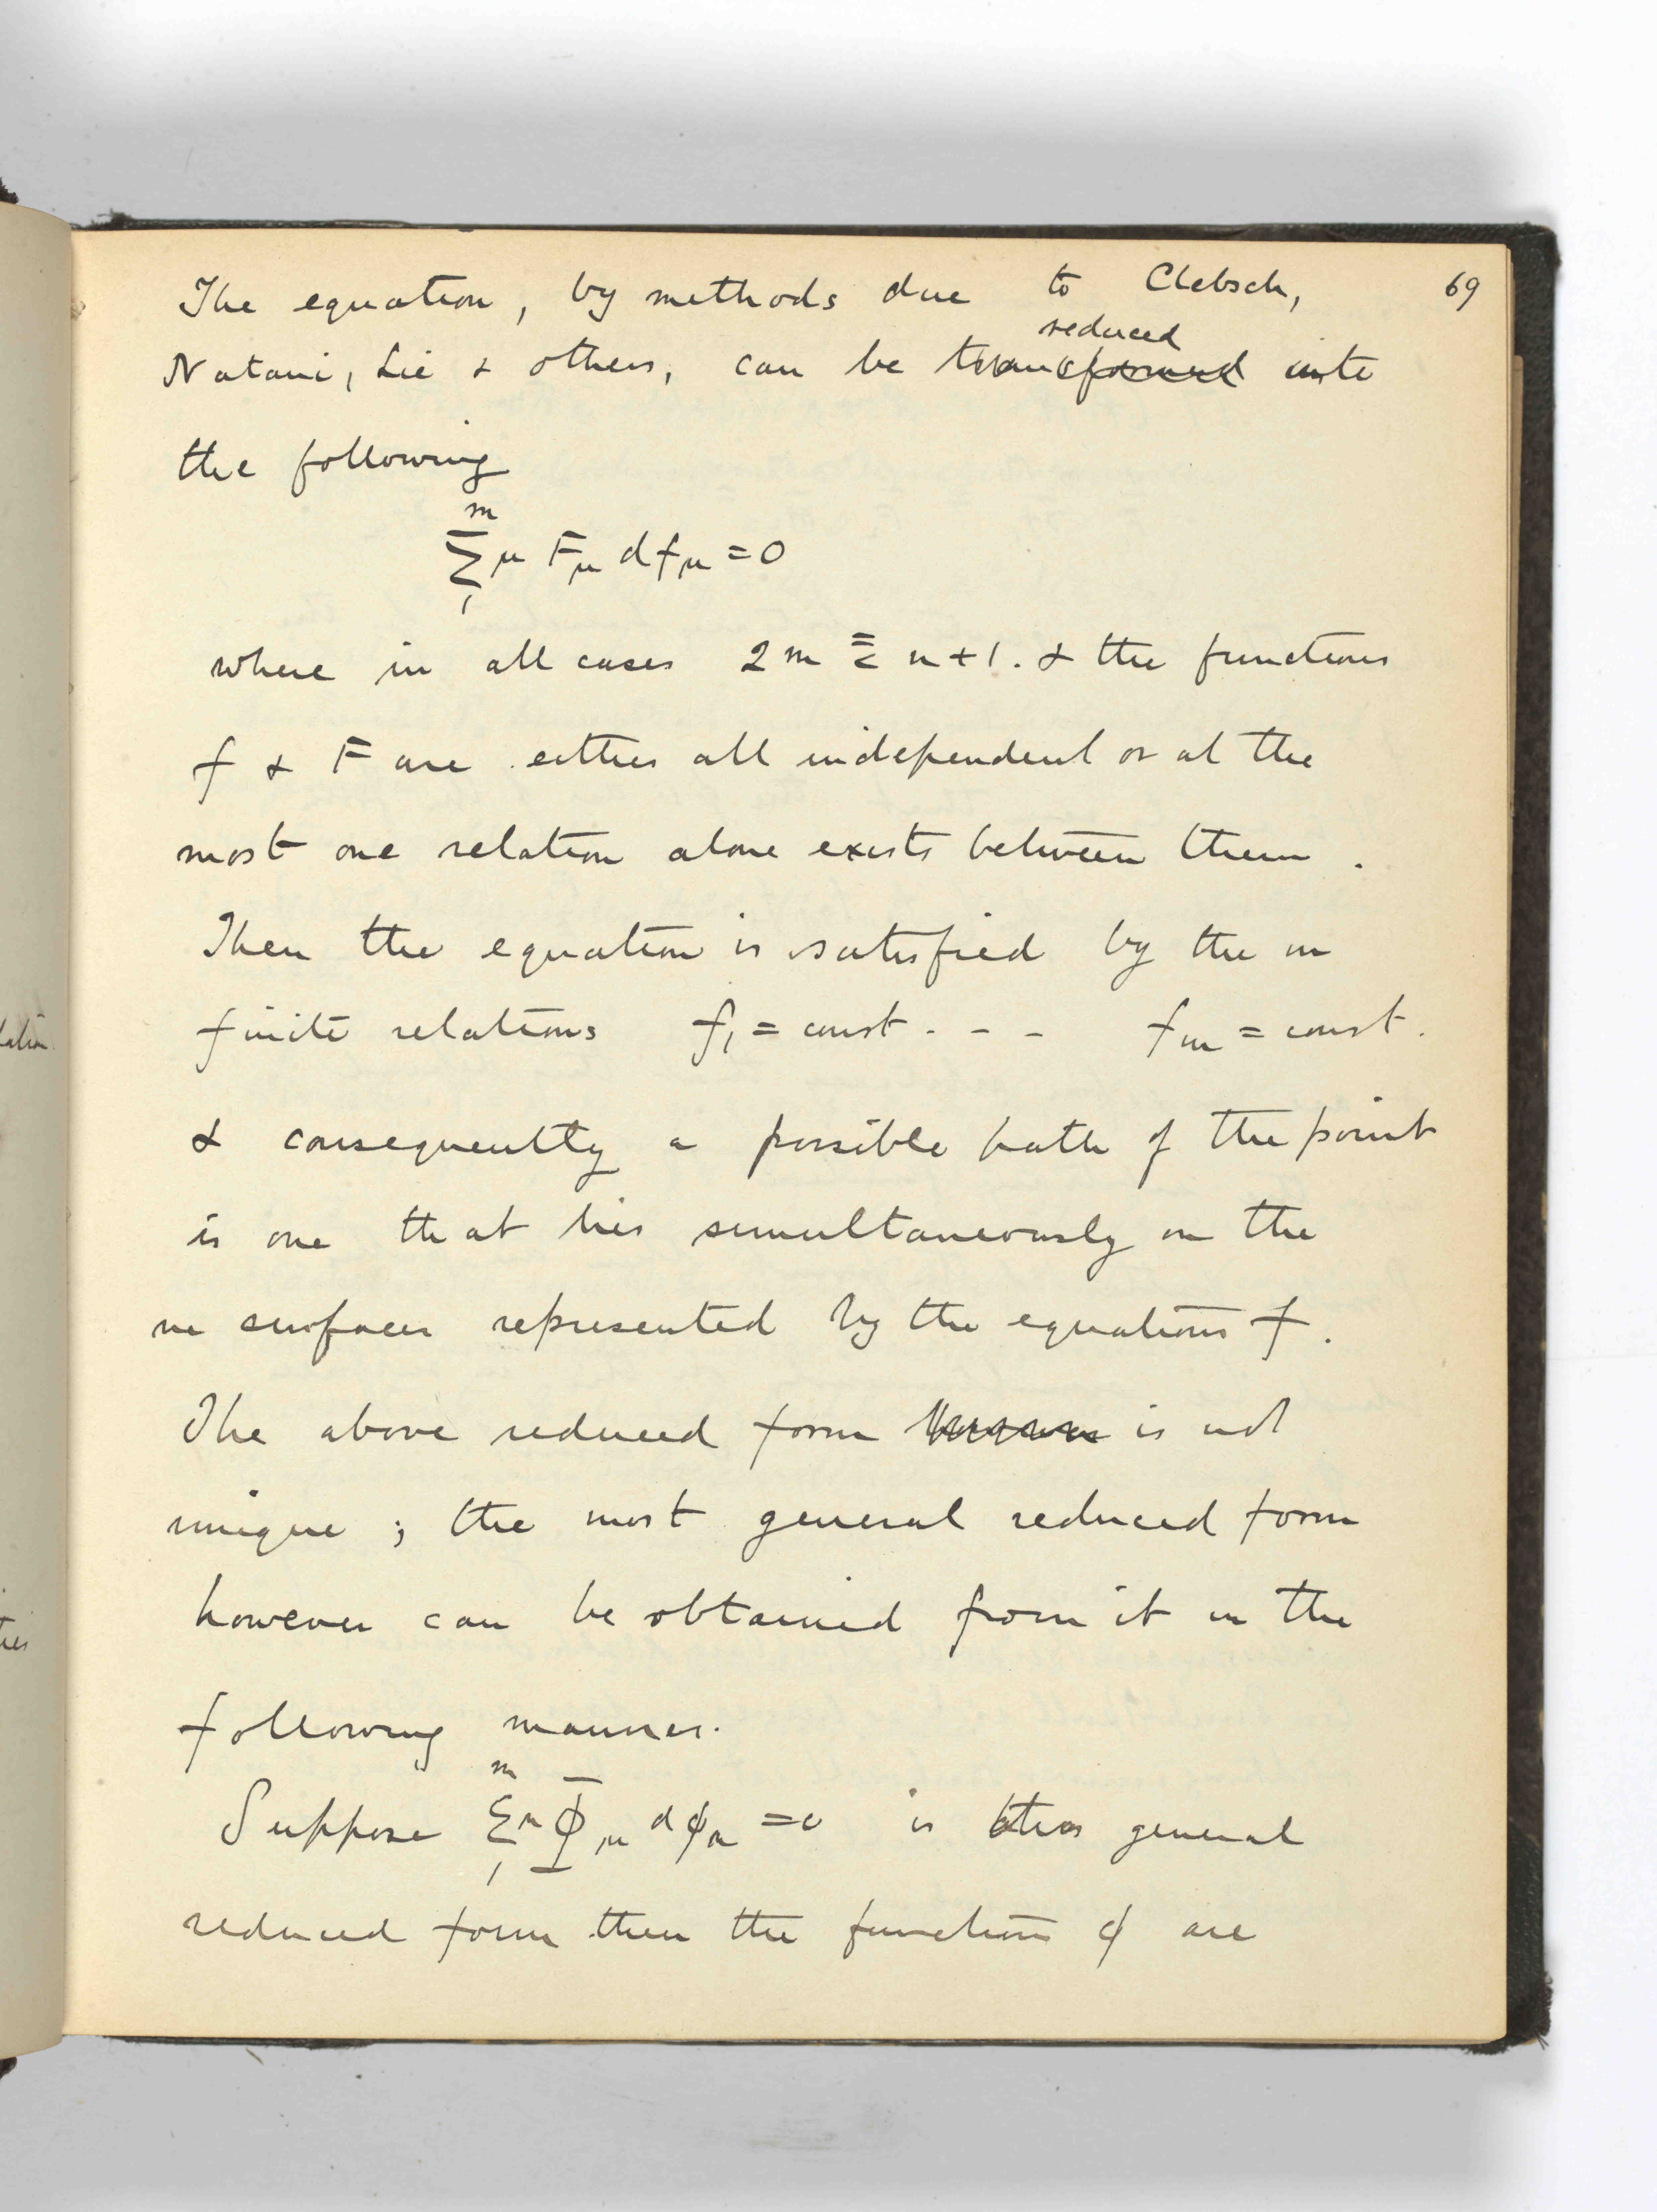 69
The equation, by methods due to Clebsch,
reduced
Natani, Lie & others, can be transformed into
the following
m
Σμ Fμ dfμ = 0
1
where in all cases 2m ≦ n+1. & the functions
f & F are either all independent or at the
most one relation alone exists between them.
Then the equation is satisfied by the m
finite relations f₁ = const. - - fm = const.
& consequently a possible path of the point
is one that lies simultaneously on the
m surfaces represented by the equations f.
The above reduced form is not
unique; the most general reduced form
however can be obtained from it in the
following manner.
m
Suppose Σμ Φμ dφμ = 0 is general
1
reduced form then the functions φ are
lation